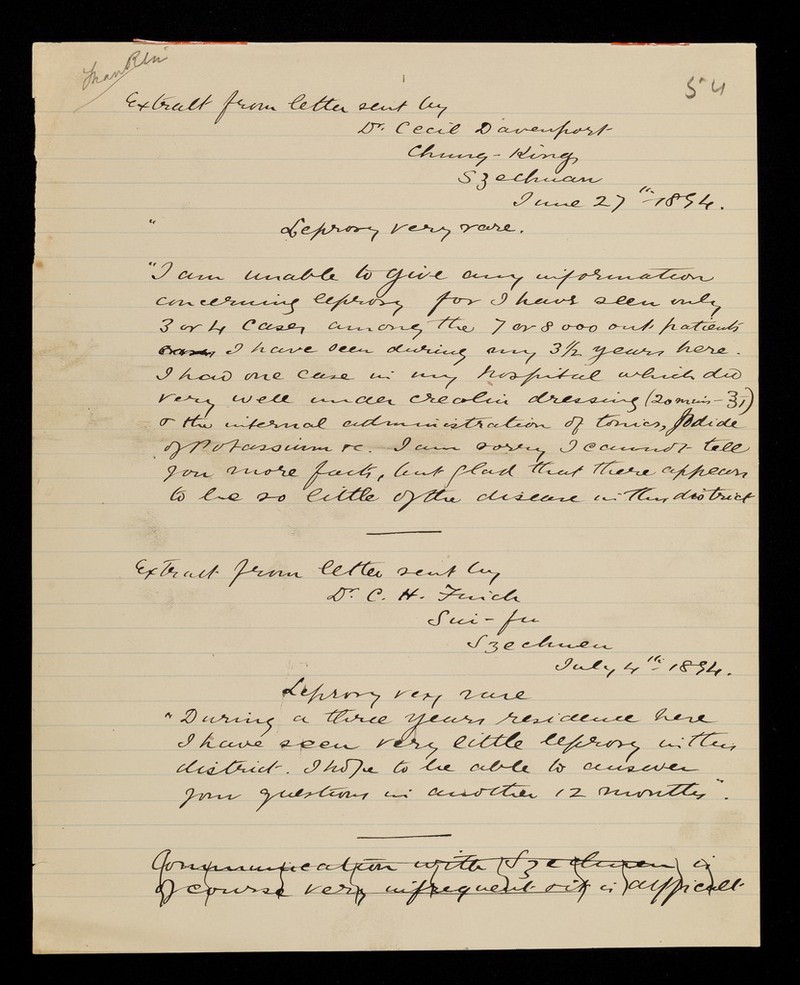 Franklin
54
Extract from letter sent by
Dr. Cecil Davenport
Chung-King
Szechuan
June 27th 1894.
" Leprosy very rare.
"I am unable to give any information
concerning leprosy for I have seen only
3 or 4 cases among the 7 or 8000 out patients
cases I have seen during my 3½ years here.
I had one case in my hospital which did
very well under creolin dressing (20 mins - ʒi)
& the internal administration of tonics, Iodide
of Potassium &c. I am sorry I cannot tell
you more facts, but glad that there appears
to be so little of the disease in this district
Extract from letter sent by
Dr. C. H. Finch
Sui-fu
Szechuen
July 4th 1894.
Leprosy very rare
"During a three years residence here
I have seen very little leprosy in this
district. I hope to be able to answer
your questions in another 12 months".
Communication with Szechuen is
of course very infrequent as it is difficult